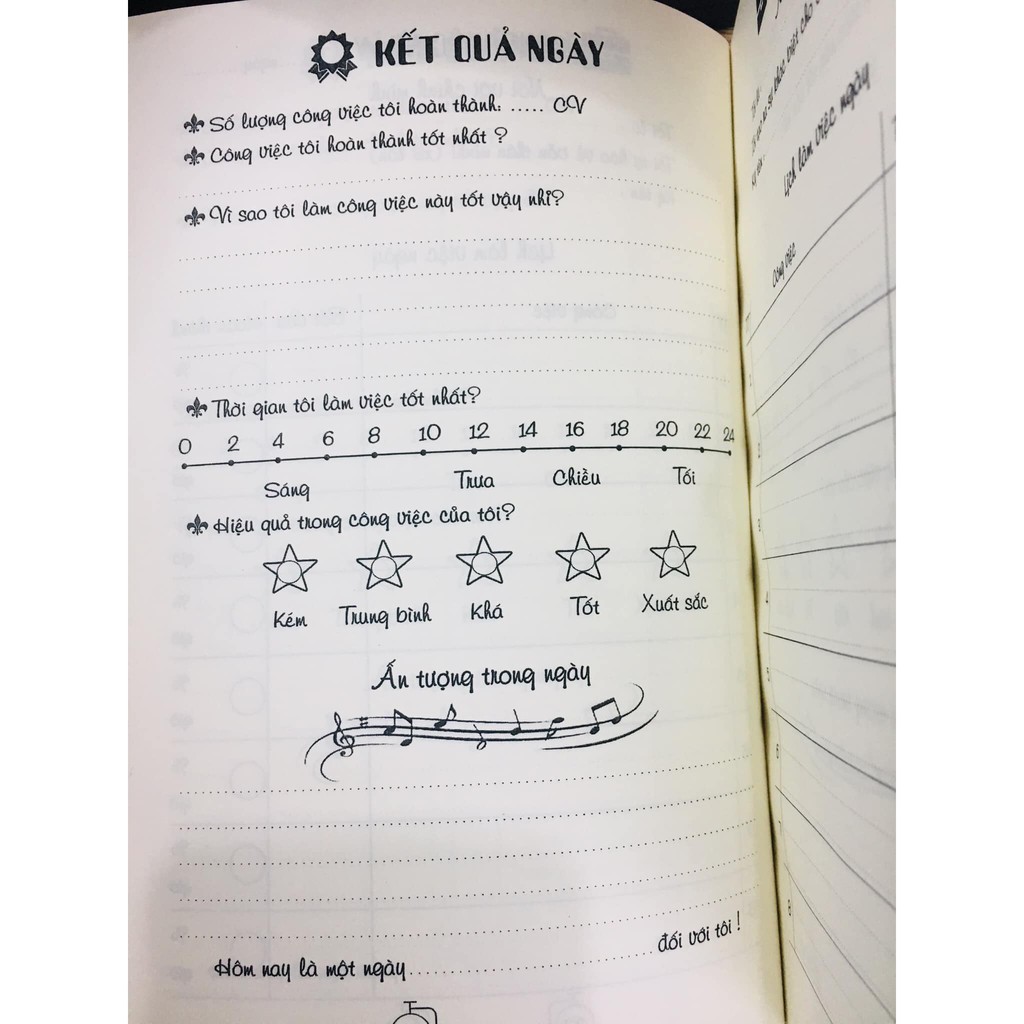 KẾT QUẢ NGÀY
Số lượng công việc tôi hoàn thành: ..... CV
Công việc tôi hoàn thành tốt nhất ?
Vì sao tôi làm công việc này tốt vậy nhỉ?
Thời gian tôi làm việc tốt nhất?
0 2 4 6 8 10 12 14 16 18 20 22 24
Sáng Trưa Chiều Tối
Hiệu quả trong công việc của tôi?
Kém Trung bình Khá Tốt Xuất sắc
Ấn tượng trong ngày
Hôm nay là một ngày.............................. đối với tôi !
Lịch làm việc ngày
Công việc